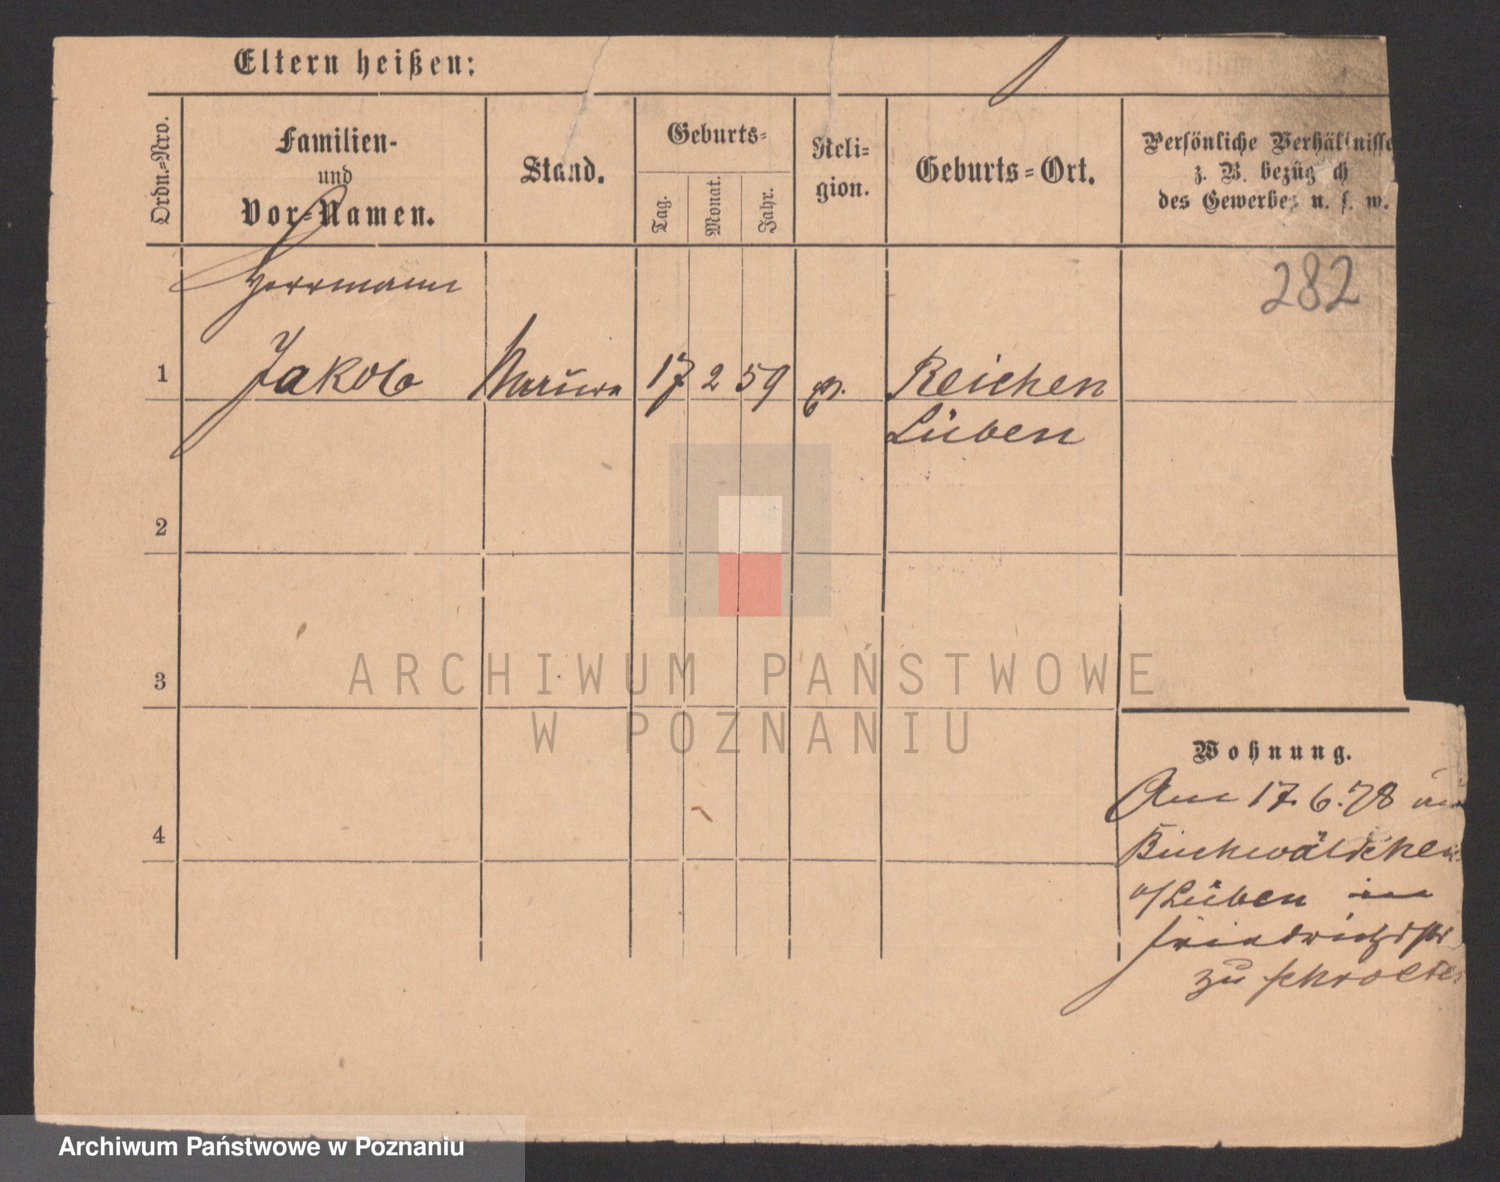 Eltern heißen:
Ordn.-Nro.
Familien-
und
Vor-Namen.
Stand.
Geburts-
Tag.
Monat.
Jahr.
Reli-
gion.
Geburts-Ort.
Persönliche Verhältnisse
z. B. bezüglich
des Gewerbes u. s. w.
282
Herrmann
1 Jakob 17 2 59 Reichen
Lüben
2
3
4
ARCHIWUM PAŃSTWOWE
W POZNANIU
Wohnung.
Am 17.6.78
Buchwäldchen
Lüben
zu
Archiwum Państwowe w Poznaniu